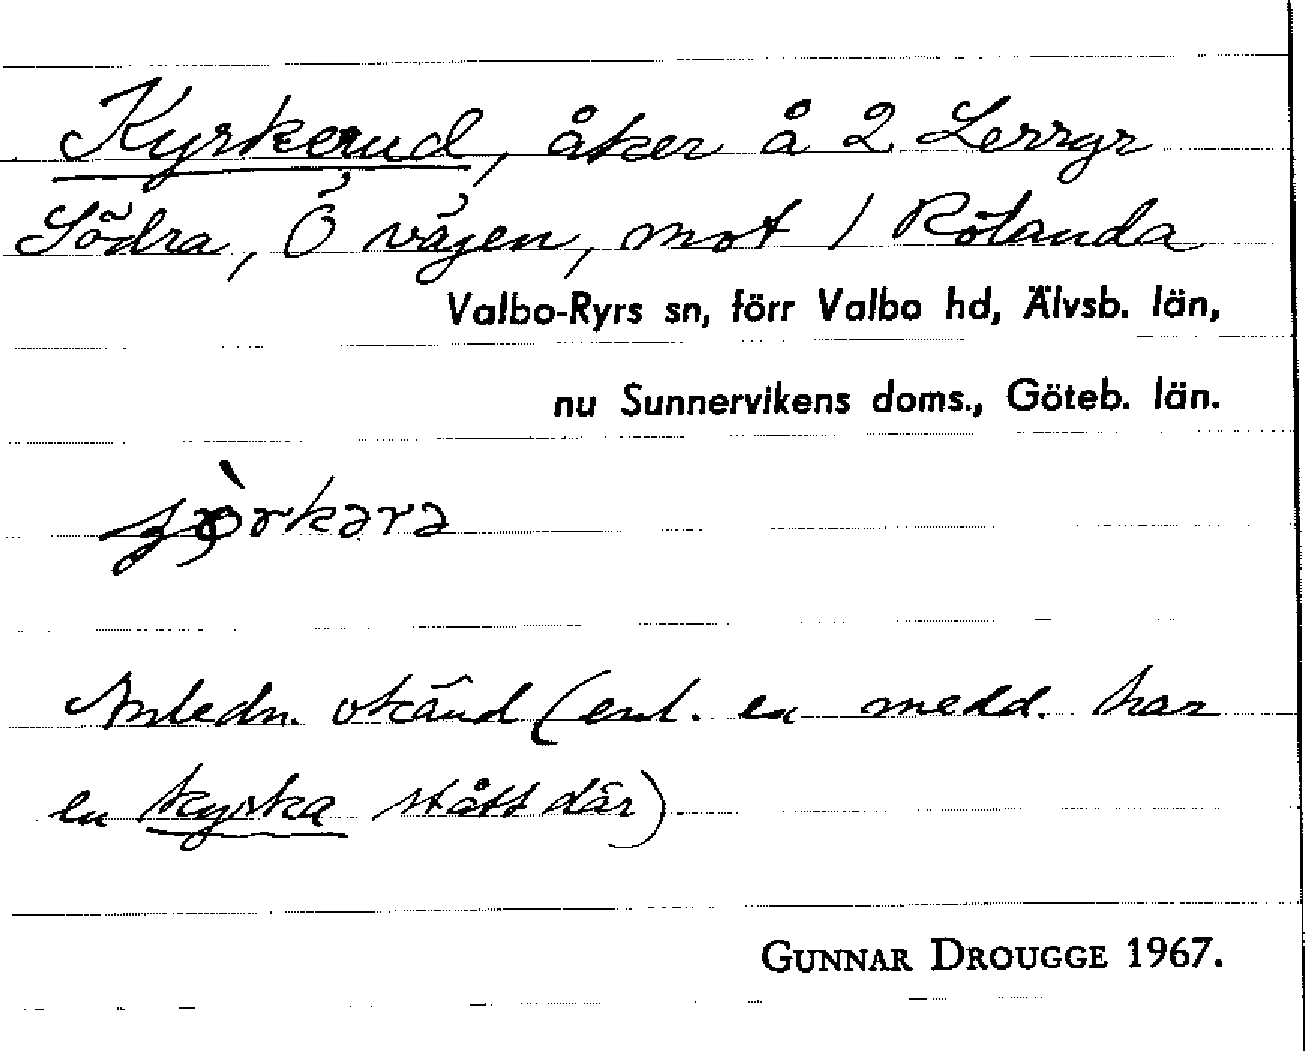 Kyrkerud, åker å 2 Lerrgr
Södra, Ö vägen, mot 1 Rölanda
Valbo-Ryrs sn, förr Valbo hd, Älvsb. län,
nu Sunnervikens doms., Göteb. län.
Anledn. okänd (enl. en medd. har
en kyrka stått där)
GUNNAR DROUGGE 1967.